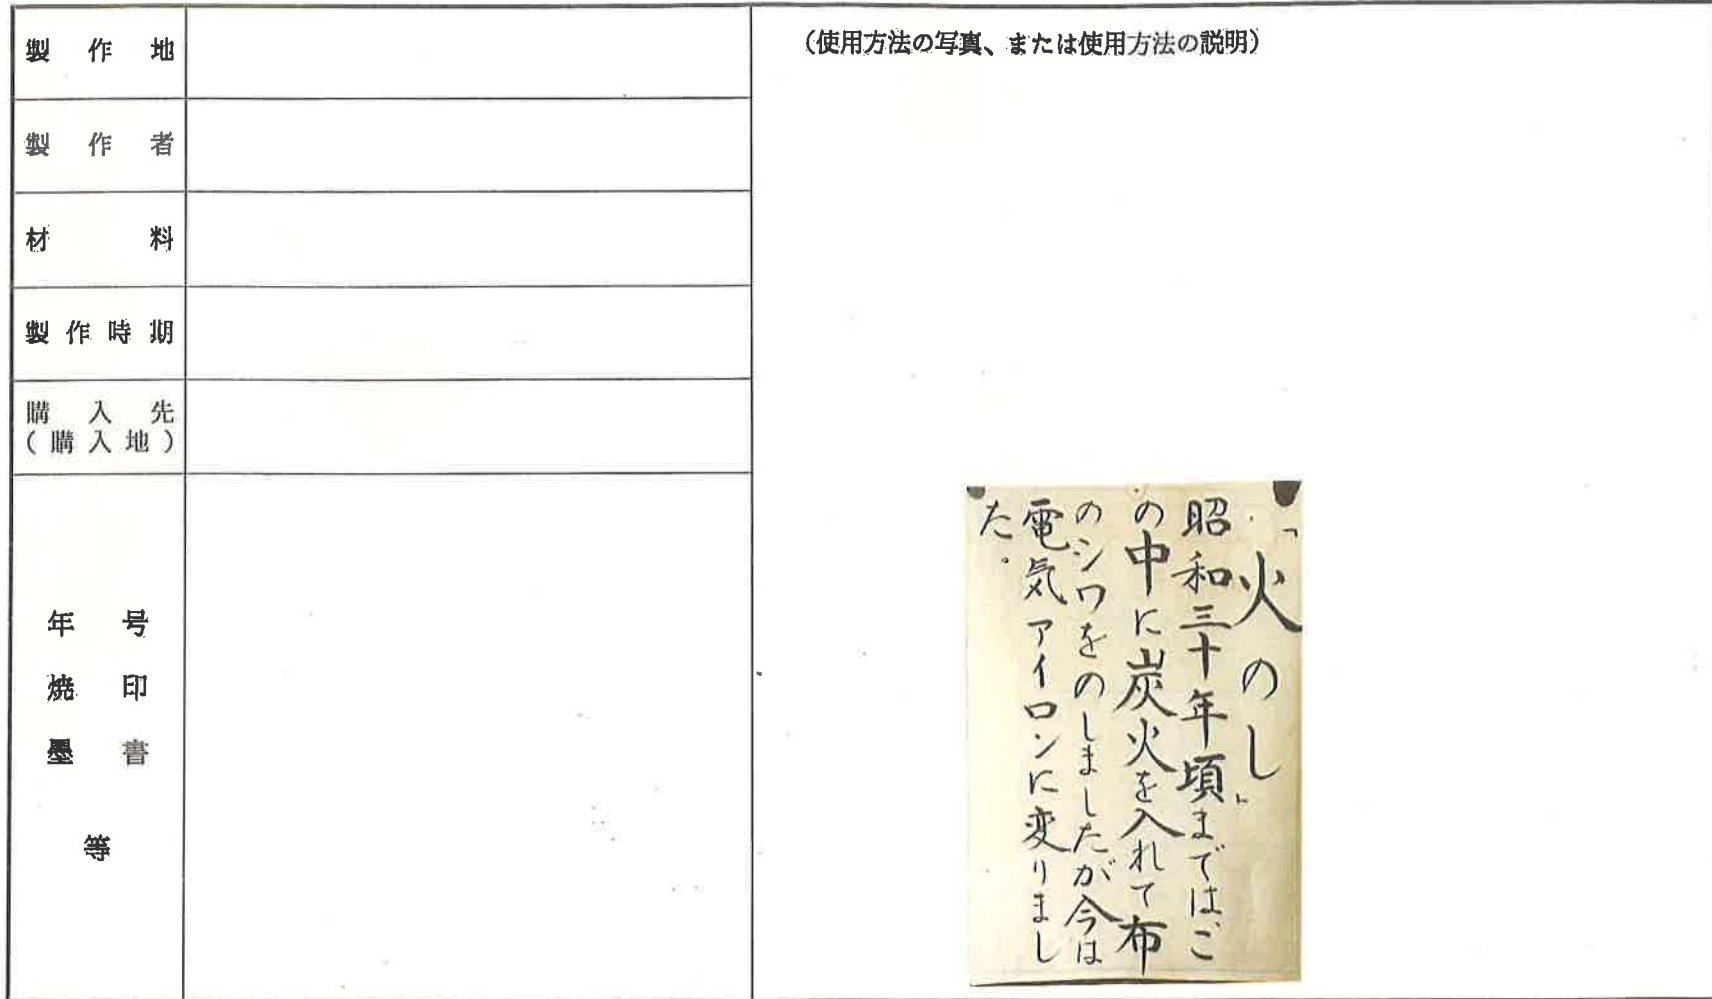 製作地
製作者
材料
製作時期
購入先
(購入地)
年号
焼印
墨書
等
(使用方法の写真、または使用方法の説明)
「火のし」
昭和三十年頃まではこ
の中に炭火を入れて布
のシワをのしましたが今は
電気アイロンに変りまし
た。